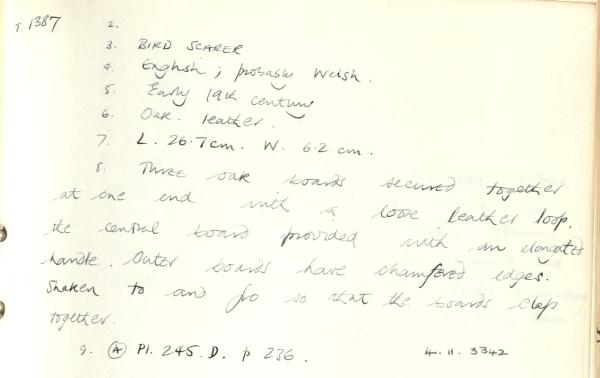 T. 1387
2.
3. BIRD SCARER
4. English; probably Welsh.
5. Early 19th century
6. Oak. leather.
7. L. 26.7cm. W. 6.2 cm.
8. Three oak boards secured together
at one end with a loose leather loop,
the central board provided with an elongated
handle. Outer boards have chamfered edges.
Shaken to and fro so that the boards clap
together.
9. A Pl. 245. D. p 236. 4. 11. 3342